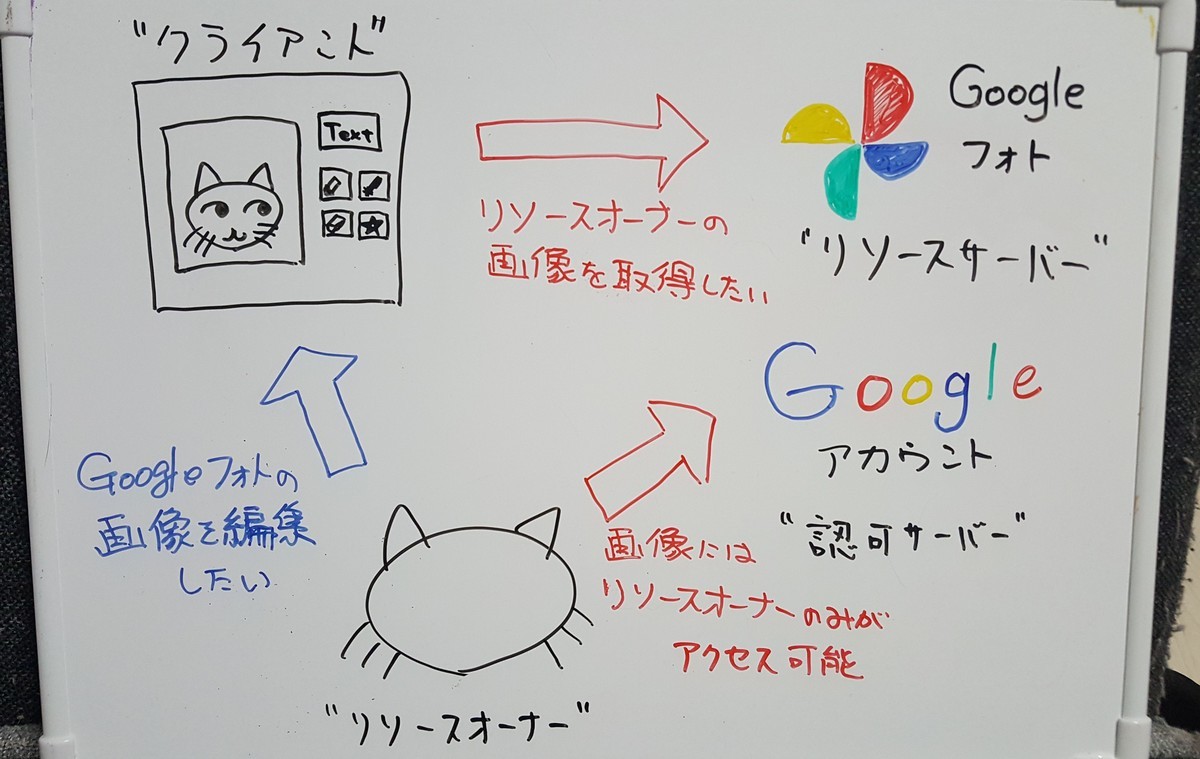 "クライアント"
Text
リソースオーナーの
画像を取得したい
Google
フォト
"リソースサーバー"
Google
アカウント
"認可サーバー"
Googleフォトの
画像を編集
したい
画像には
リソースオーナーのみが
アクセス可能
"リソースオーナー"